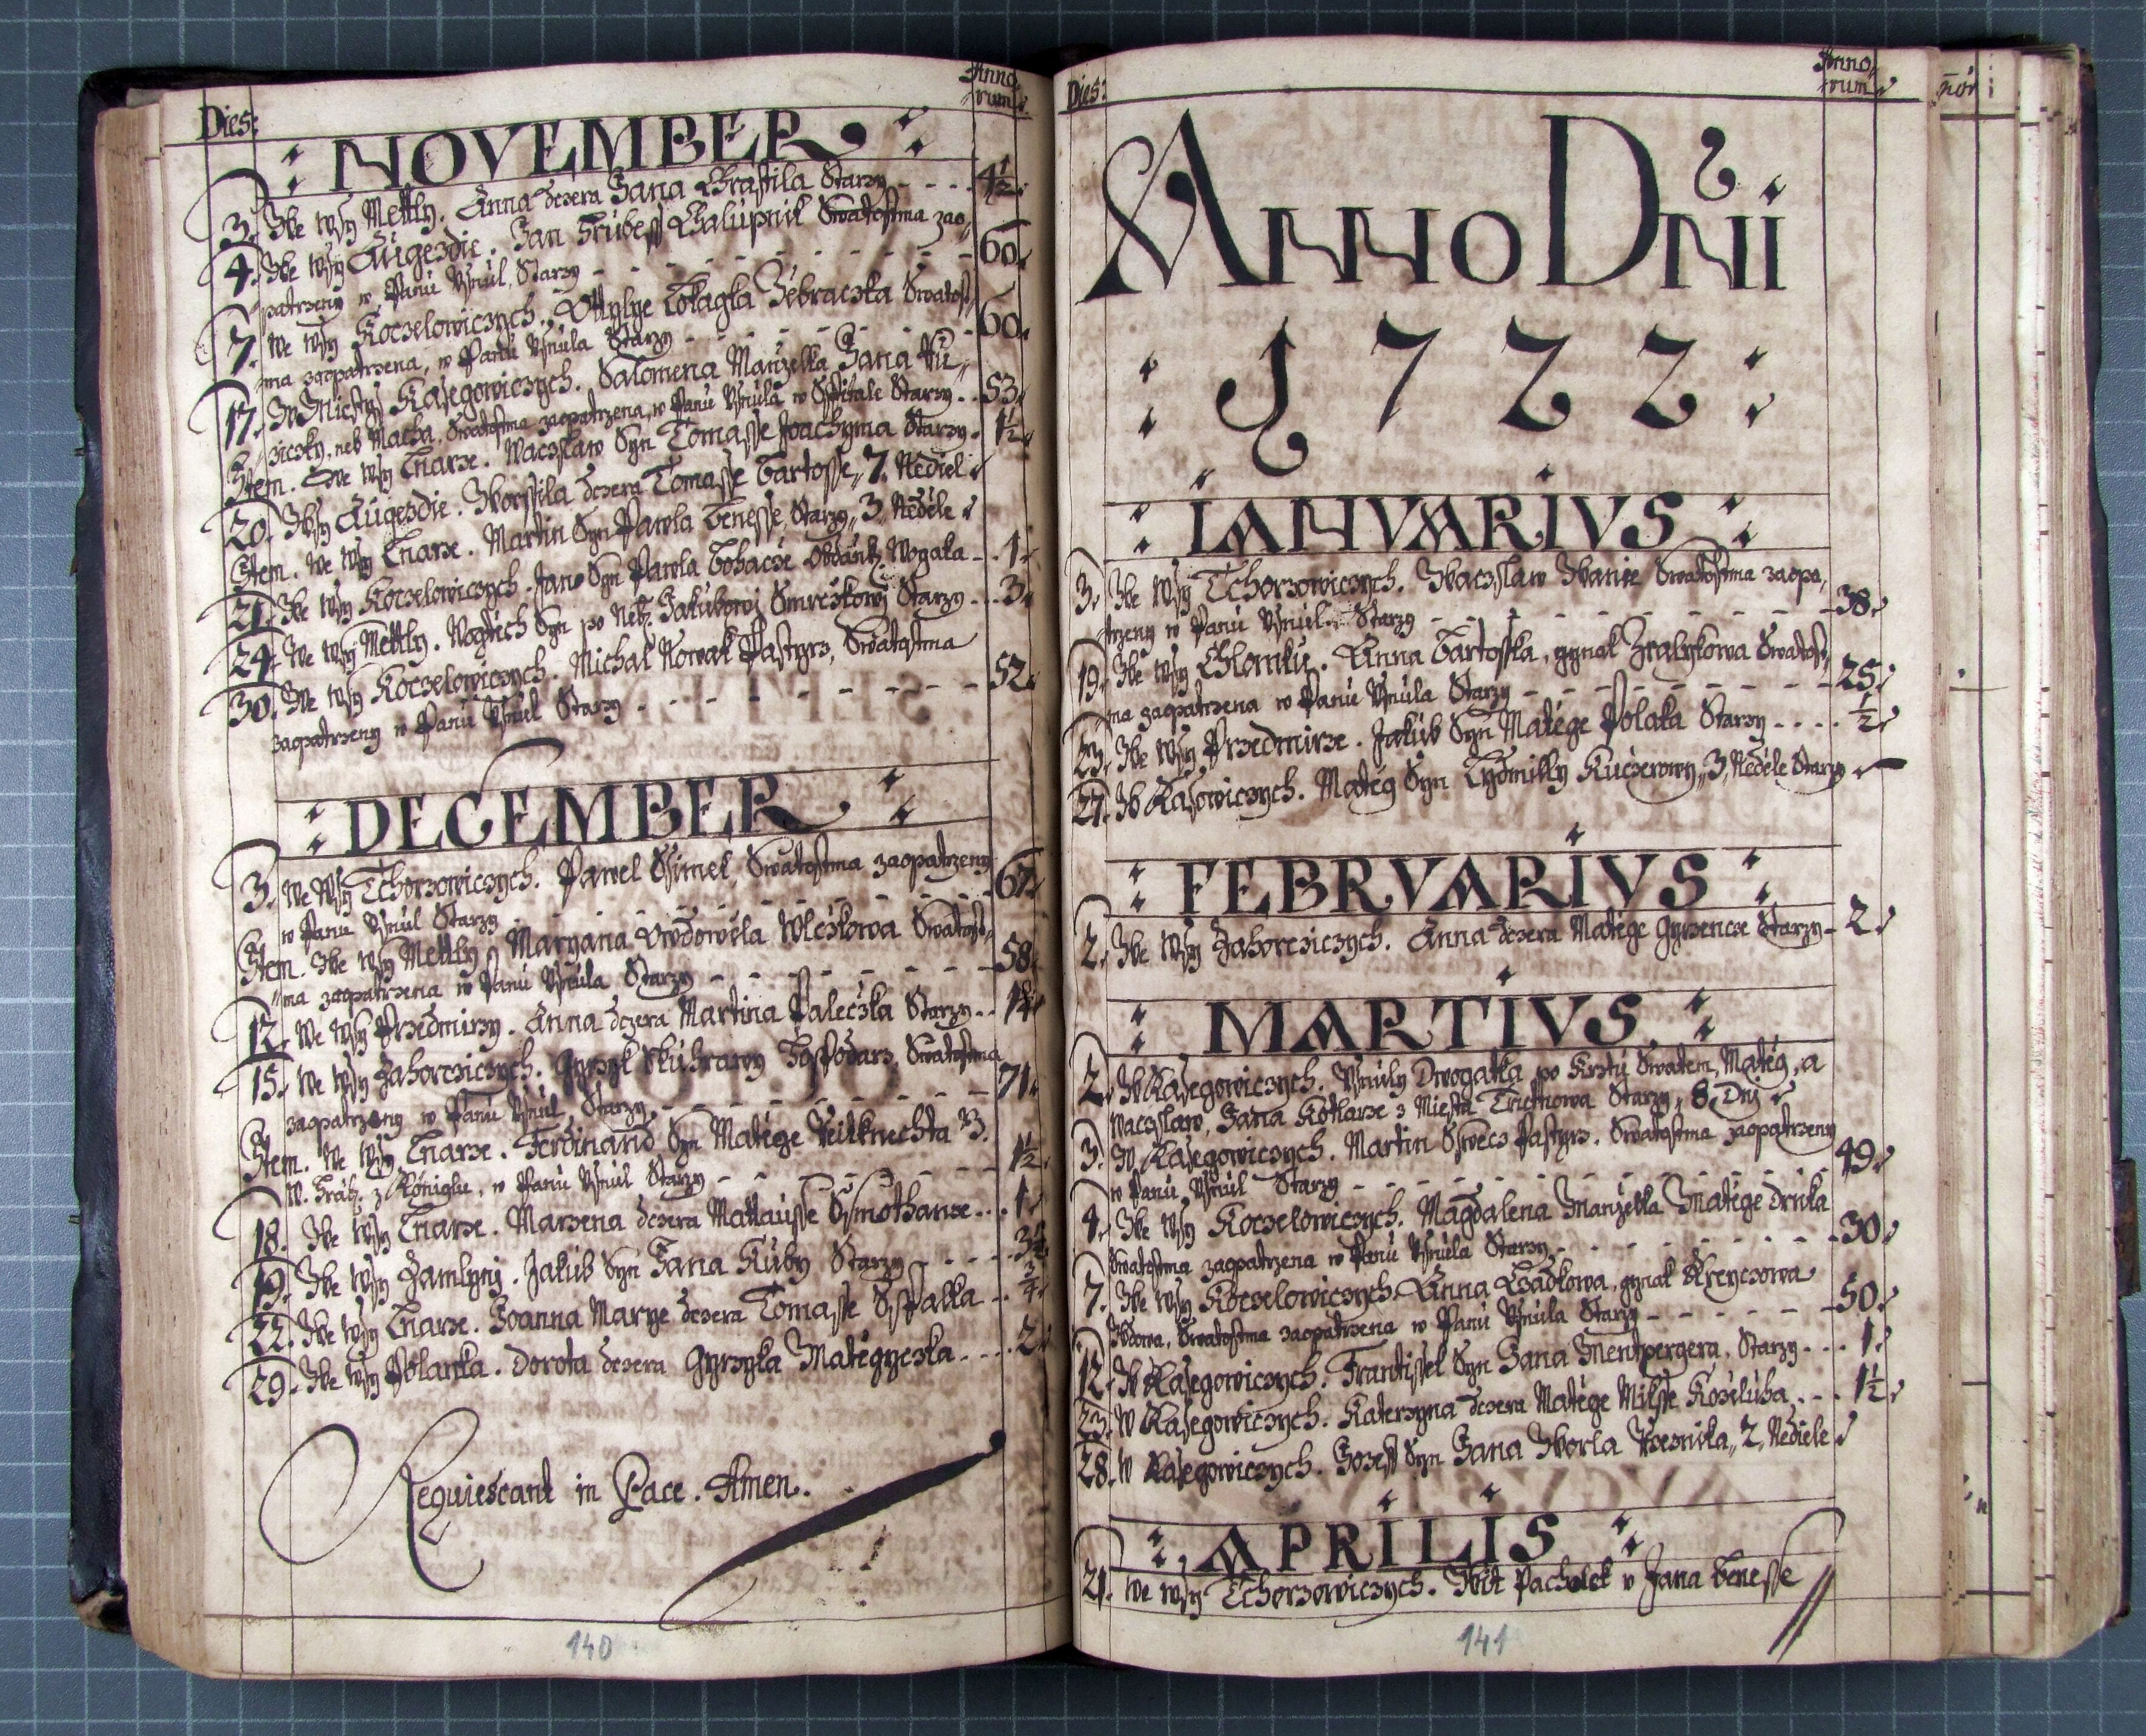 Dies:
Anno,
rum.
: NOVEMBER. :
3. We Wsy Mettly. Anna dczera Jana Chrastila Starzy - - - 4½.
4. We Wsy Augezdie. Jan Trubess Chalupnik Swatostma zao,
patrzeny w Panu Vsnul, Starzy - - - 60.
7. We Wsy Koczelowiczych. Zebraczka Swatost,
ma zaopatrzena, w Panu Vsnula Starzy - - - 60.
17. W Miesty Kasegowiczych. Salomena Manzelka Jana Ru,
ziczky, neb Macha, Swatostma zaopatrzena, w Panu Vsnula w Sspitale Starzy. . 53.
Item. We Wsy Lnarze. Waczslaw Syn Tomasse Joachyma Starzy. 1½.
20. Wsy Augezdie. Worssila dczera Tomasse Bartosse, 7. Nediel
Item. We Wsy Lnarze. Martin Syn Pawla Benesse, Starzy, 3. Nedele
21. We Wsy Koczelowiczych. Jan Syn Pawla Wogaka - . 1.
24. We Wsy Mettly. Wogtech Syn po Neb. Jakubowi Smrczkowi Starzy . . . 3.
30. We Wsy Koczelowiczych. Michal Nowak Pastyrz, Swatostma
zaopatrzeny w Panu Vsnul Starzy - - - 52.
: DECEMBER. :
3. We Wsy Tchorzowiczych. Pawel Ssimek, Swatostma zaopatrzeny
w Panu Vsnul Starzy - - - 67.
Item. We Wsy Mettly, Maryana Wdowela Wlczkowa Swatost,
ma zaopatrzena w Panu Vsnula Starzy - - - 58.
12. We Wsy Przedmirzy. Anna dczera Martina Paleczka Starzy. .
15. We Wsy Zahorcziczych. Gyrzyk Skuhrawy Hospodarz, Swatostma
zaopatrzeny w Panu Vsnul, Starzy. - - - 71.
Item. We Wsy Lnarze. Ferdinand Syn Matege
w Panu Vsnul Starzy - - - 1½.
18. We Wsy Lnarze. Marzena dczera Mattausse . . . 1.
19. We Wsy Zamlyni. Jakub Syn Jana Kuby Starzy - - - 3½
22. We Wsy Lnarze. Joanna Marye dczera Tomasse Sspalka - . ¾
29. We Wsy Polanka. Dorota dczera Gyrzyka Mategyczka. . . . 2.
Requiescant in Pace. Amen.
140
Dies:
Anno,
rum
Anno Dni
: 1722 :
: IANVARIVS :
3. We Wsy Tchorzowiczych. Waczslaw Wanie Swatostma zaopa,
trzeny w Panu Vsnul. Starzy - - - 38.
19. We Wsy Chlomku. Anna Bartosska, gynak Zralykowa Swatost,
ma zaopatrzena w Panu Vsnula Starzy - - - 25.
23. We Wsy Przedmirze. Jakub Syn Matege Polaka Starzy . . . . ½
27. W Kasowiczych. Mateg Syn Lydmilly Kuczerowy, 3, Nedele Starzy
: FEBRVARIVS :
2. We Wsy Zahorcziczych. Anna dczera Matege Gyrzencze Starzy - 2.
: MARTIVS. :
2. W Kasegowiczych. Vsnuly Dwogatka po Krztu Swatem, Mateg, a
Waczslaw, Jana Kotlarze z Miesta Starzy, 8. Dni
3. W Kasegowiczych. Martin Sswecz Pastyrz. Swatostma zaopatrzeny
w Panu Vsnul Starzy - - - 49.
4. We Wsy Koczelowiczych. Magdalena Manzelka Matege Drnka
Swatostma zaopatrzena w Panu Vsnula Starzy. - - - 30.
7. We Wsy Koczelowiczych. Anna Czadkowa, gynak Kreyczowa
Wdowa. Swatostma zaopatrzena w Panu Vsnula Starzy - - - 50.
12. W Kasegowiczych. Frantissek Syn Jana Mentpergera. Starzy . . . 1.
23. W Kasegowiczych. Katerzyna dczera Matege Miksse Kozeluha . . . 1½
28. W Kasegowiczych. Jozeff Syn Jana Worla Rzeznika, 2, Nediele
: APRILIS :
21. We Wsy Tchorzowiczych. Wit Pacholek v Jana Benesse
141